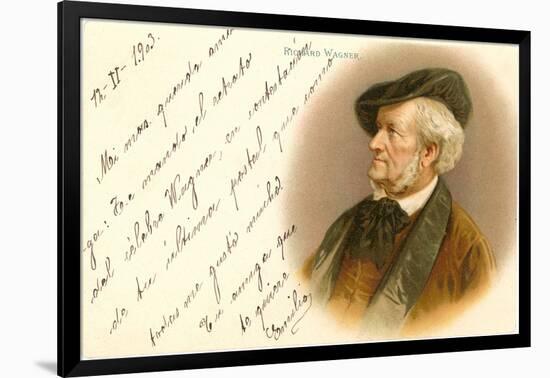 12-II-1903.
RICHARD WAGNER.
Mi mas querida ami-
ga: Te mando el retrato
del célebre Wagner, en contestación
de tu última postal que como
todas me gusta mucho.
Tu amiga que
te quiere
Emilia